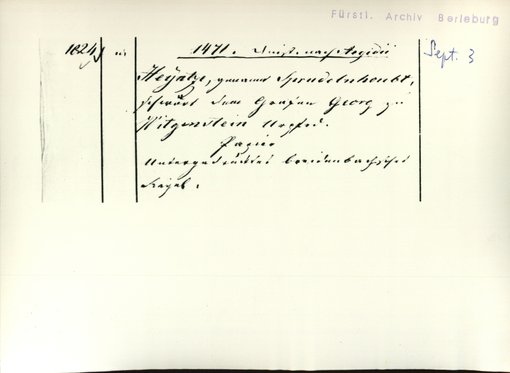 Fürstl. Archiv Berleburg
1471. Dinst. nach Aegidii
Sept. 3
Heyntze, genannt Sprudelnhoubt,
schwört dem Grafen Georg zu
Witgenstein Urfed.
Papier
Untergedrücktes breidenbachsches
Siegel.